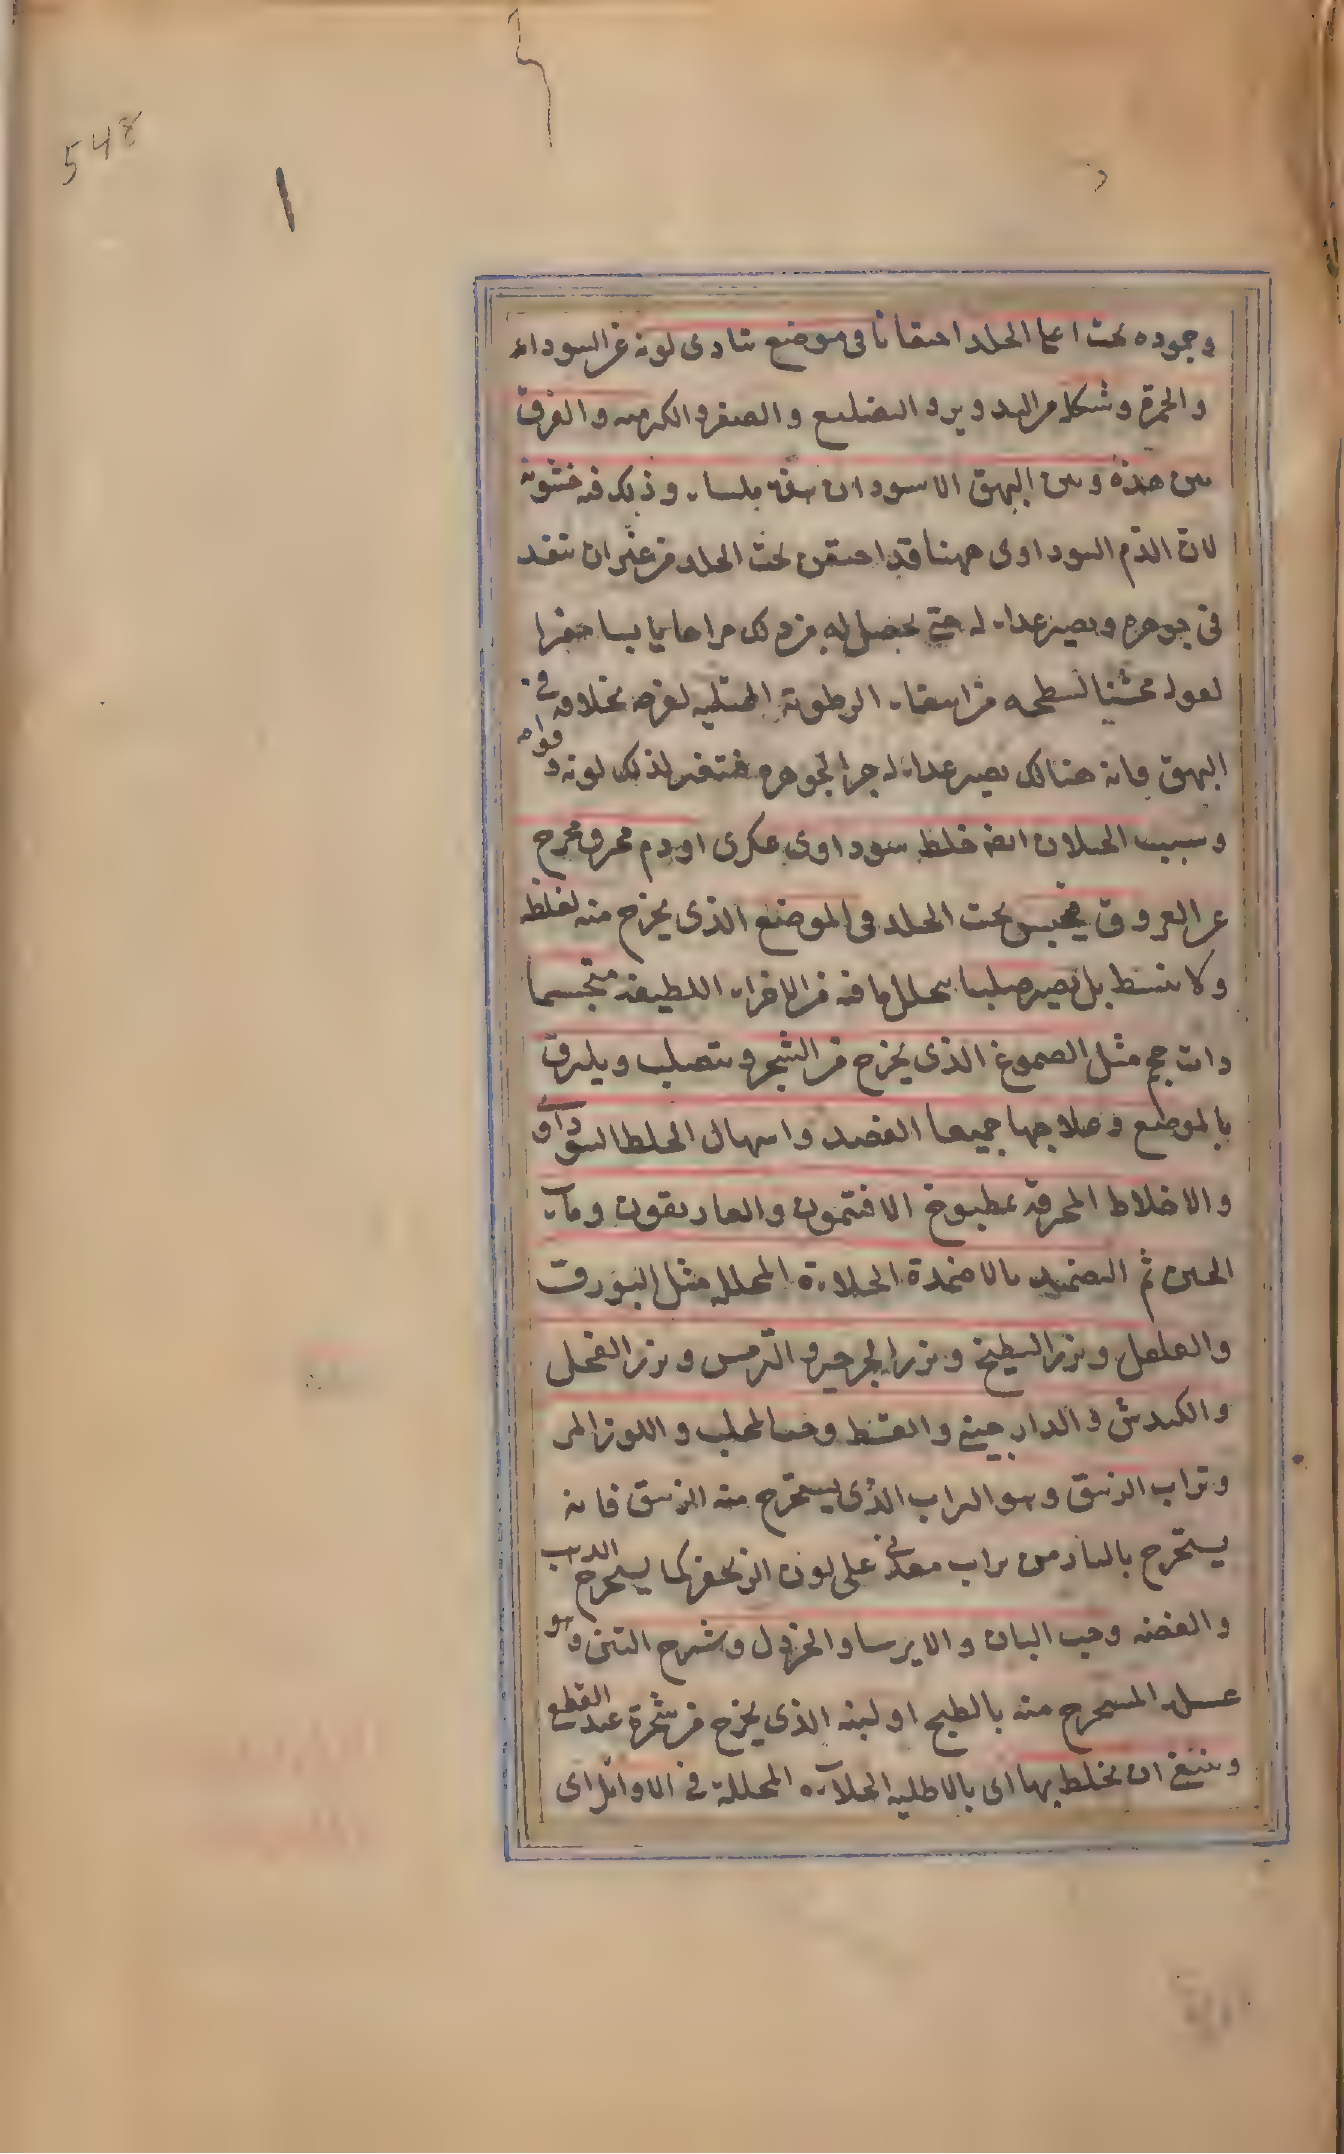 548
وجموده تحت اعلى الجلد احتقانا فى موضع يتادى لونه عن السوداء
والحمرة وشكله من التدوير والتضليع والصغر والكبر منه والفرق
بين هذه وبين البهق الاسود ان سقه ملساء وذلك فيه خشونة
لان الدم السوداوى ههنا قد احتقن تحت الجلد من غير ان ينفذ
فى جوهره ويصير غذاء له حتى يحصل له من ذلك مزاجا يابسا
لسطحه من الرطوبة بخلافه فى
البهق فانه هنالك يصير غذاء له جزءا لجوهره فتغير لذلك لونه وقوامه
وسبب الخيلان ايضا خلط سوداوى عكرى او دم محرق يخرج
عن العروق فيحبس تحت الجلد فى الموضع الذى يخرج منه لغلظه
ولا ينبسط بل يصير صلبا يتحلل ما فيه من الاجزاء اللطيفة متجسما
ذات حجم مثل الصموغ الذى يخرج من الشجر ويتصلب ويلزق
بالموضع وعلاجها جميعا الفصد واسهال الخلط السوداوى
والاخلاط المحرقة بمطبوخ الافتيمون والغاريقون وماء
الجبن ثم التضميد بالاضمدة الجلاءة المحللة مثل البورق
والفلفل وبزر البطيخ وبزر الجرجير والترمس وبزر الفجل
والكندش والدارجينى والقسط وحب المحلب واللوز المر
وتراب الزئبق وهو التراب الذى يستخرج منه الزئبق فانه
يستخرج بالنار من تراب معدنى على لون الزنجفر كما يستخرج الذهب
والفضة وحب البان والايرسا والخردل وشيرج التين وهو
عسله المستخرج منه بالطبخ او لبنه الذى يخرج من شجرة عند القطع
وينبغى ان يخلط بها اى بالاطلية الجلاءة المحللة فى الاوائل اى